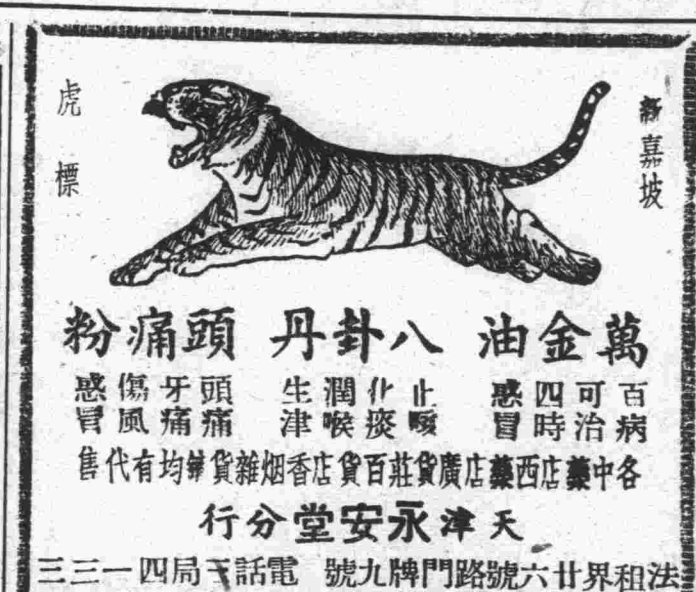 新嘉坡
虎標
萬金油 八卦丹 頭痛粉
百病 可治 四時 感冒
止咳 化痰 潤喉 生津
頭痛 牙痛 傷風 感冒
各中藥店西藥店廣貨莊百貨店香烟雜貨舖均有代售
天津永安堂分行
法租界廿六號路門牌九號 電話三局四一三三